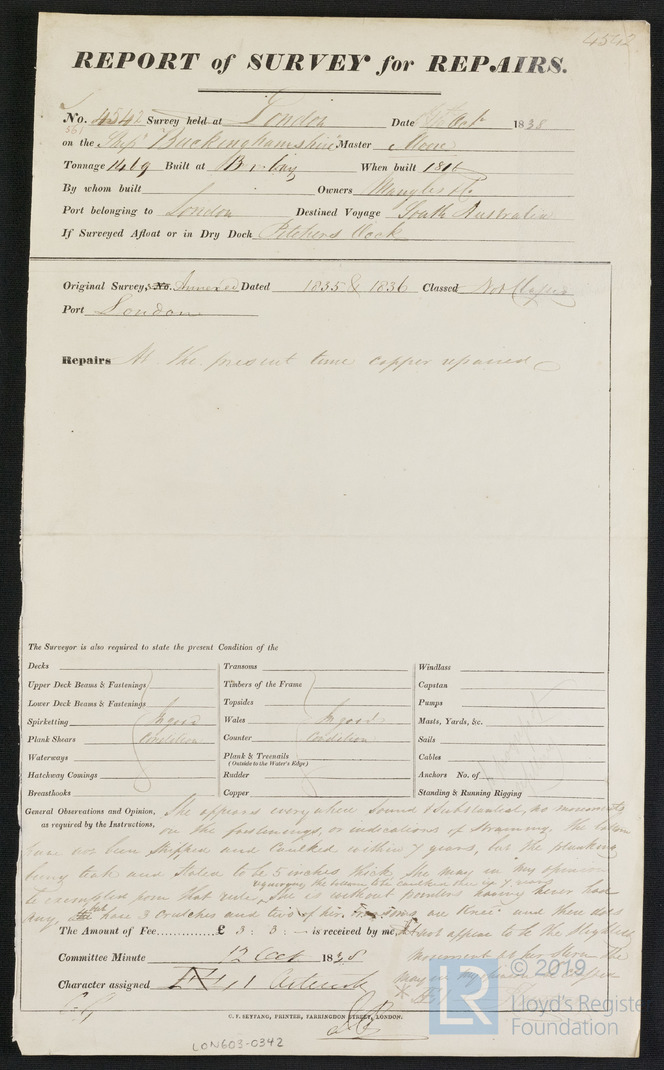 4542
REPORT of SURVEY for REPAIRS.
No. 4542 Survey held at London Date Oct 1838
561
on the Ship "Buckinghamshire" Master Moore
Tonnage 1469 Built at Bombay When built 1816
By whom built Owners Mangles & Co.
Port belonging to London Destined Voyage South Australia
If Surveyed Afloat or in Dry Dock Pitchers Dock
Original Survey, No. Annexed Dated 1835 & 1836 Classed Not Classed
Port London
Repairs At the present time copper repaired
The Surveyor is also required to state the present Condition of the
Decks Transoms Windlass
Upper Deck Beams & Fastenings Timbers of the Frame Capstan
Lower Deck Beams & Fastenings Topsides Pumps
Spirketting In good Wales In good Masts, Yards, &c.
Plank Shears Condition Counter Condition Sails
Waterways Plank & Treenails Cables
(Outside to the Water's Edge)
Hatchway Comings Rudder Anchors No. of
Breasthooks Copper Standing & Running Rigging
General Observations and Opinion, She appears everywhere sound & substantial, no movements
as required by the Instructions, on the fastenings, or indications of straining, the bottom
has not been stripped and caulked within 7 years, but the planking
being teak and stated to be 5 inches thick she may in my opinion
requiring the bottom to be caulked once in 7 years
be exempted from that rule, She is without pointers having never had
any, but has 3 crutches and two of her are Knee'd and there does
The Amount of Fee............£ 3 : 3 : — is received by me, not appear to be the slightest
Committee Minute 12 Oct 1838 movement at her Stern. She
Character assigned Æ 1 may in my
C. F. SEYFANG, PRINTER, FARRINGDON STREET, LONDON.
LON603-0342
LR
© 2019
Lloyd's Register
Foundation